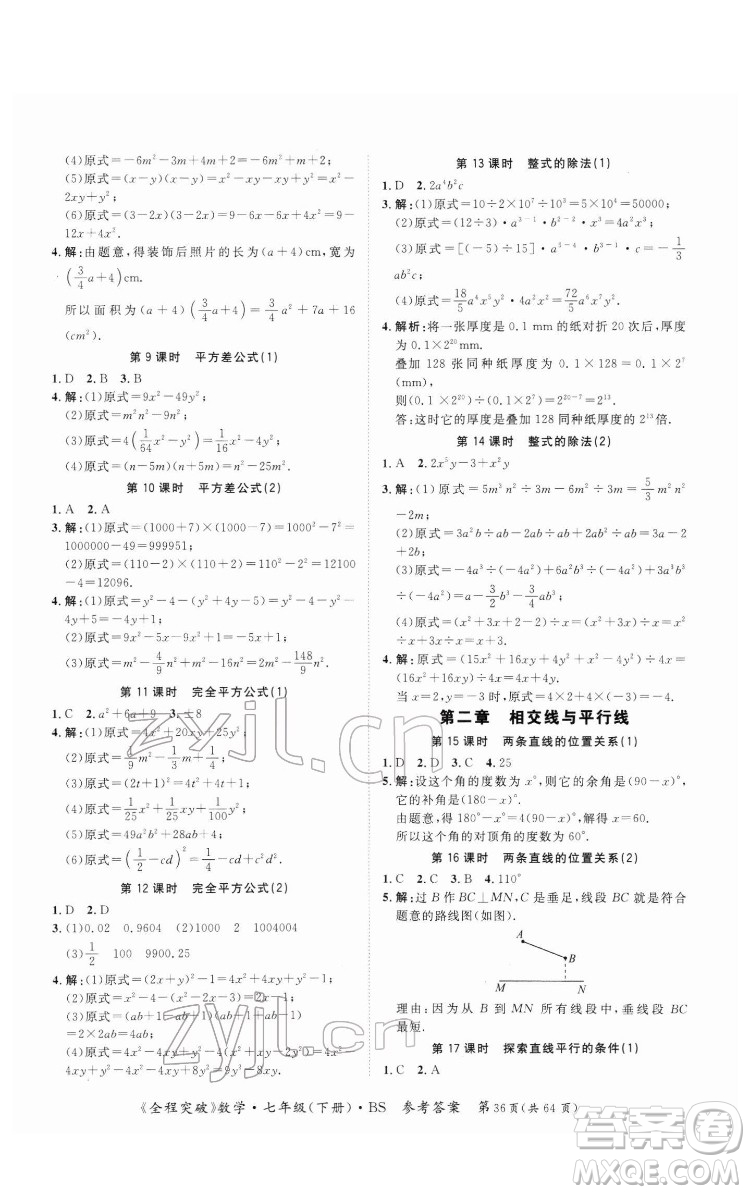 (4)原式=-6m²-3m+6m²-9m=-12m.
(5)原式=(x-y)(x-y)=x²-xy-xy+y²=x²-
2xy+y²;
(6)原式=(3-2x)(3-2x)=9-6x-6x+4x²=9-
12x+4x².
4.解:由题意,得装饰后照片的长为(a+4)cm,宽为
(3/4a+4)cm.
所以面积为(a+4)(3/4a+4)=3/4a²+7a+16
(cm²).
第9课时 平方差公式(1)
1.D 2.B 3.B
4.解:(1)原式=9x²-49y²;
(2)原式=m²n²-9n²;
(3)原式=4(1/64x²-y²)=1/16x²-4y²;
(4)原式=(n-5m)(n+5m)=n²-25m².
第10课时 平方差公式(2)
1.A 2.A
3.解:(1)原式=(1000+7)×(1000-7)=1000²-7²=
1000000-49=999951;
(2)原式=(110-2)×(110+2)=110²-2²=12100
-4=12096.
4.解:(1)原式=y²-4-y²-4y+5=y²-4-y²-
4y+5=-4y+1;
(2)原式=m²-4/9n²+m²-16n²=2m²-148/9n².
第11课时 完全平方公式(1)
1.C 2.a²+6a+9 3.±8
4.解:(1)原式=4x²+20xy+25y²;
(2)原式=4/9m²-4/3mn+n²;
(3)原式=(2t+1)²=4t²+4t+1;
(4)原式=1/25x²+4/25xy+4/25y²;
(5)原式=49a²b²+28ab+4;
(6)原式=(1/2-cd)²=1/4-cd+c²d².
第12课时 完全平方公式(2)
1.D 2.D
3.(1)0.02 0.9604 (2)1000 4 1004004
(3)1/2 100 9900.25
4.解:(1)原式=(2x+y)²=4x²+4xy+y²;
(2)原式=x²-4-(x²-6x+9)=6x-13;
(3)原式=(ab+1+ab-1)(ab+1-ab+1)
=2×2ab=4ab;
(4)原式=4x²-4xy+y²-4(x²+xy-2xy-2y²)=
4x²-4xy+y²-4x²+4xy+8y²=9y².
第13课时 整式的除法(1)
1.D 2.2a⁴b²c
3.解:(1)原式=10÷2×10⁷÷10³=5×10⁴=50000;
(2)原式=(12÷3)·a³⁻¹·b²⁻²=4a²;
(3)原式=[(-5)÷15]·a⁵⁻⁴·b³⁻¹·c=-1/3
ab²c;
(4)原式=18/5a⁴x⁵y²÷1/4x²=72/5a⁴x³y².
4.解析:将一张厚度是0.1 mm的纸对折20次后,厚度
为:0.1×2²⁰(mm);
叠加128张同种纸的厚度为:0.1×128=0.1×2⁷
(mm).
则(0.1×2²⁰)÷(0.1×2⁷)=2²⁰⁻⁷=2¹³.
答:这时它的厚度是叠加128同种纸厚度的2¹³倍.
第14课时 整式的除法(2)
1.A 2.2x⁵y-3+x²y
3.解:(1)原式=5m³n²÷3m-6m²÷3m=5/3m²n²
-2m;
(2)原式=3a²b÷ab-2ab²÷ab+ab÷ab=3a-2b
+1;
(3)原式=-4a³÷(-4a²)+6a²b³÷(-4a²)+12a²
÷(-4a²)=a-3/2b³-3;
(4)原式=(x²+3x+2+x²-2)÷x=(2x²+3x)
÷x=2x²÷x+3x÷x=2x+3.
4.解:原式=(15x²+16xy+4y²+x²-4y²)÷4x=
(16x²+16xy)÷4x=4x+4y.
当x=2,y=1时,原式=4×2+4×1=12.
第二章 相交线与平行线
第15课时 两条直线的位置关系(1)
1.D 2.D 3.C 4.25
5.解:设这个角的度数为x°,它的余角是(90-x)°,
它的补角是(180-x)°.
由题意,得180°-x°=4(90-x)°,解得x=60.
所以这个角的对顶角的度数为60°.
第16课时 两条直线的位置关系(2)
1.C 2.C 3.B 4.110°
5.解:过B作BC⊥MN,C是垂足,线段BC就是符合
题意的路线图(如图).
A
B
M N
理由:因为从B到MN所有线段中,垂线段BC
最短.
第17课时 探索直线平行的条件(1)
1.C 2.C 3.A
《全程突破》数学·七年级(下册)·BS 参考答案 第36页(共64页)
zyjl.cn
zyjl.cn
答案圈
MXQE.COM